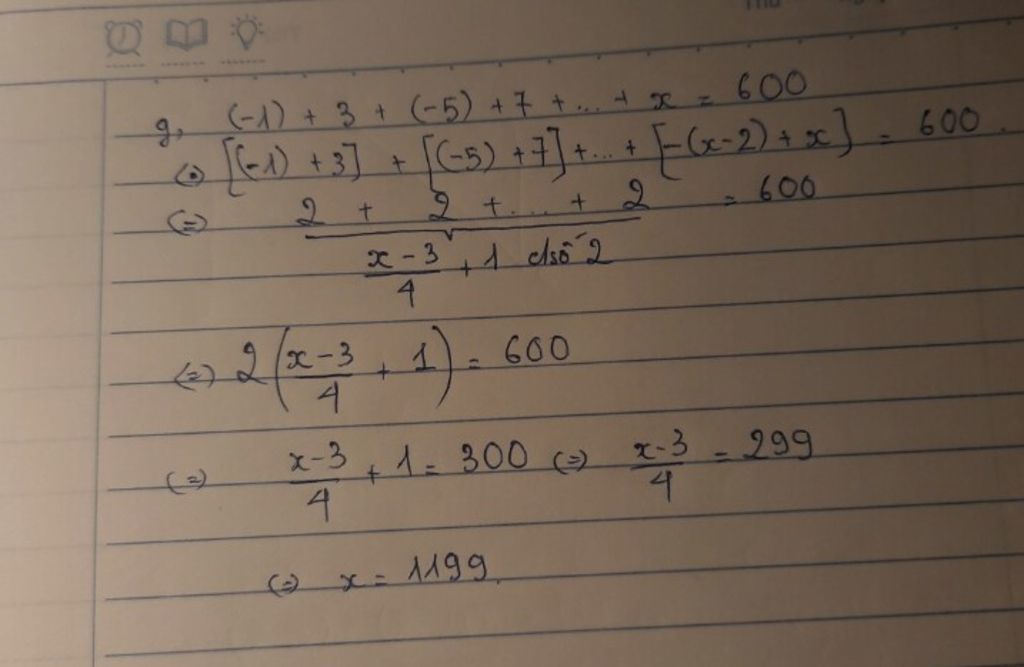 g, (-1) + 3 + (-5) + 7 + ... + x = 600
(=) [(-1) + 3] + [(-5) + 7] + ... + [-(x-2) + x] = 600.
(=) 2 + 2 + ... + 2 = 600
x - 3 / 4 + 1 c/số 2
(=) 2 (x-3 / 4 + 1) = 600
(=) x-3 / 4 + 1 = 300 (=) x-3 / 4 = 299
(=) x = 1199.